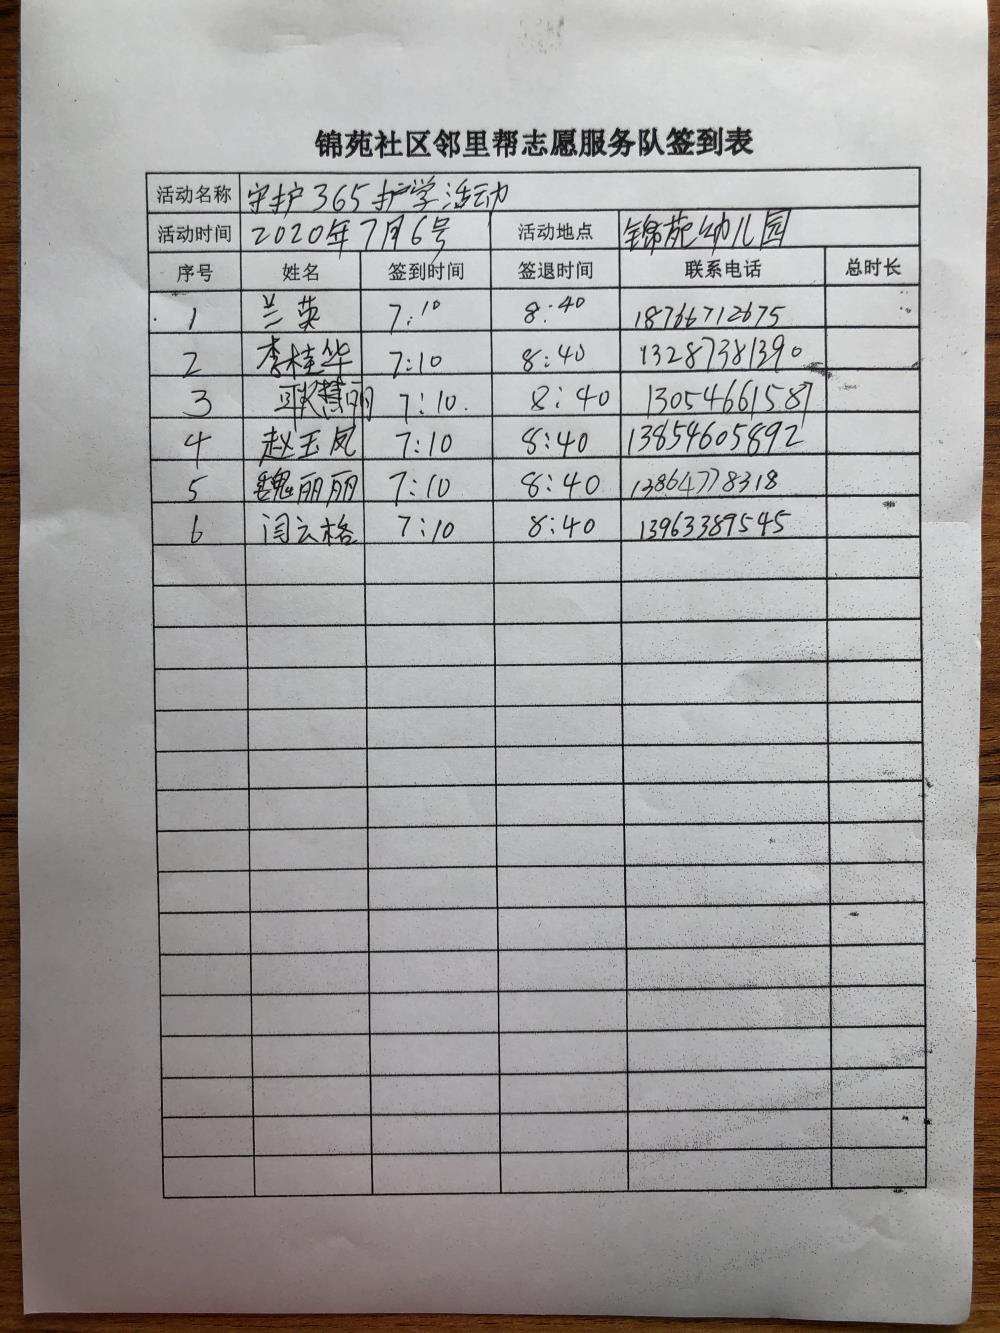 锦苑社区邻里帮志愿服务队签到表
活动名称 守护365护学活动
活动时间 2020年7月6号 活动地点 锦苑幼儿园
序号 姓名 签到时间 签退时间 联系电话 总时长
1 兰英 7:10 8:40 18766712675
2 李桂华 7:10 8:40 13287381390
3 耿慧丽 7:10. 8:40 13054661587
4 赵玉凤 7:10 8:40 13854605892
5 魏丽丽 7:10 8:40 13864778318
6 闫云格 7:10 8:40 13963389545